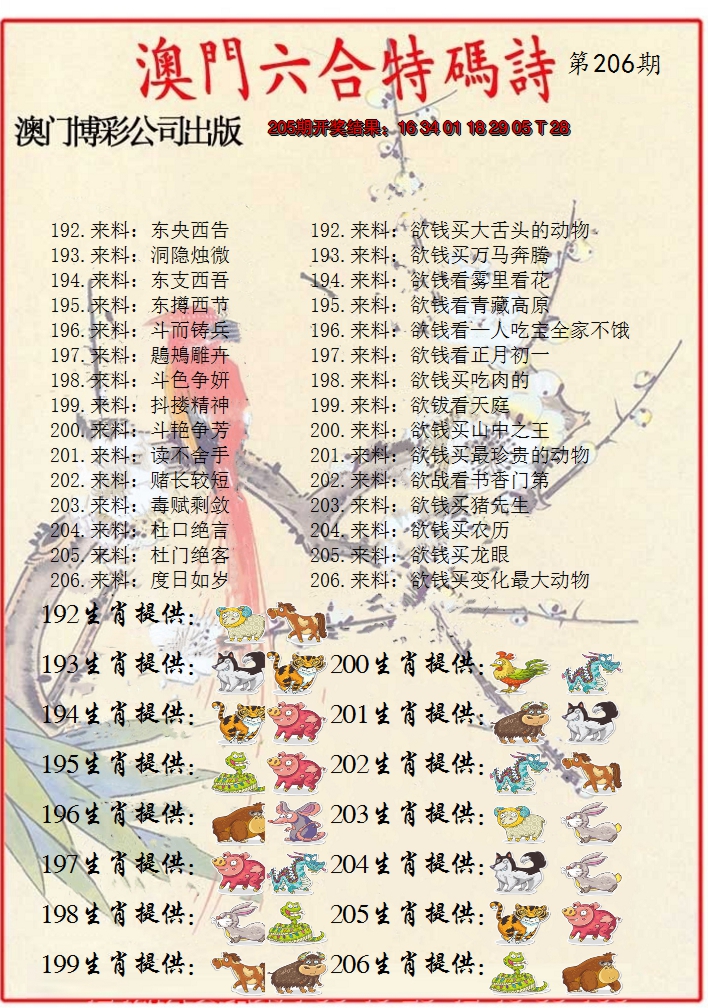 澳門六合特碼詩 第206期
澳门博彩公司出版 205期开奖结果：16 34 01 18 29 05 T 28
192.来料：东央西告 192.来料：欲钱买大舌头的动物
193.来料：洞隐烛微 193.来料：欲钱买万马奔腾
194.来料：东支西吾 194.来料：欲钱看雾里看花
195.来料：东撙西节 195.来料：欲钱看青藏高原
196.来料：斗而铸兵 196.来料：欲钱看一人吃宝全家不饿
197.来料：鵾鴂雕卉 197.来料：欲钱看正月初一
198.来料：斗色争妍 198.来料：欲钱买吃肉的
199.来料：抖搂精神 199.来料：欲钹看天庭
200.来料：斗艳争芳 200.来料：欲钱买山中之王
201.来料：读不舍手 201.来料：欲钱买最珍贵的动物
202.来料：赌长较短 202.来料：欲战看书香门第
203.来料：毒赋剩敛 203.来料：欲钱买猪先生
204.来料：杜口绝言 204.来料：欲钱买农历
205.来料：杜门绝客 205.来料：欲钱买龙眼
206.来料：度日如岁 206.来料：欲钱买变化最大动物
192生肖提供：
193生肖提供： 200生肖提供：
194生肖提供： 201生肖提供：
195生肖提供： 202生肖提供：
196生肖提供： 203生肖提供：
197生肖提供： 204生肖提供：
198生肖提供： 205生肖提供：
199生肖提供： 206生肖提供：